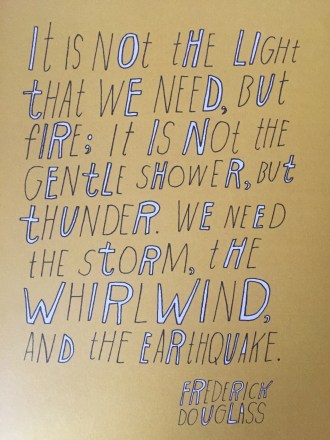 It is not the light
that we need, but
fire; it is not the
gentle shower, but
thunder. We need
the storm, the
whirlwind,
and the earthquake.
Frederick
Douglass